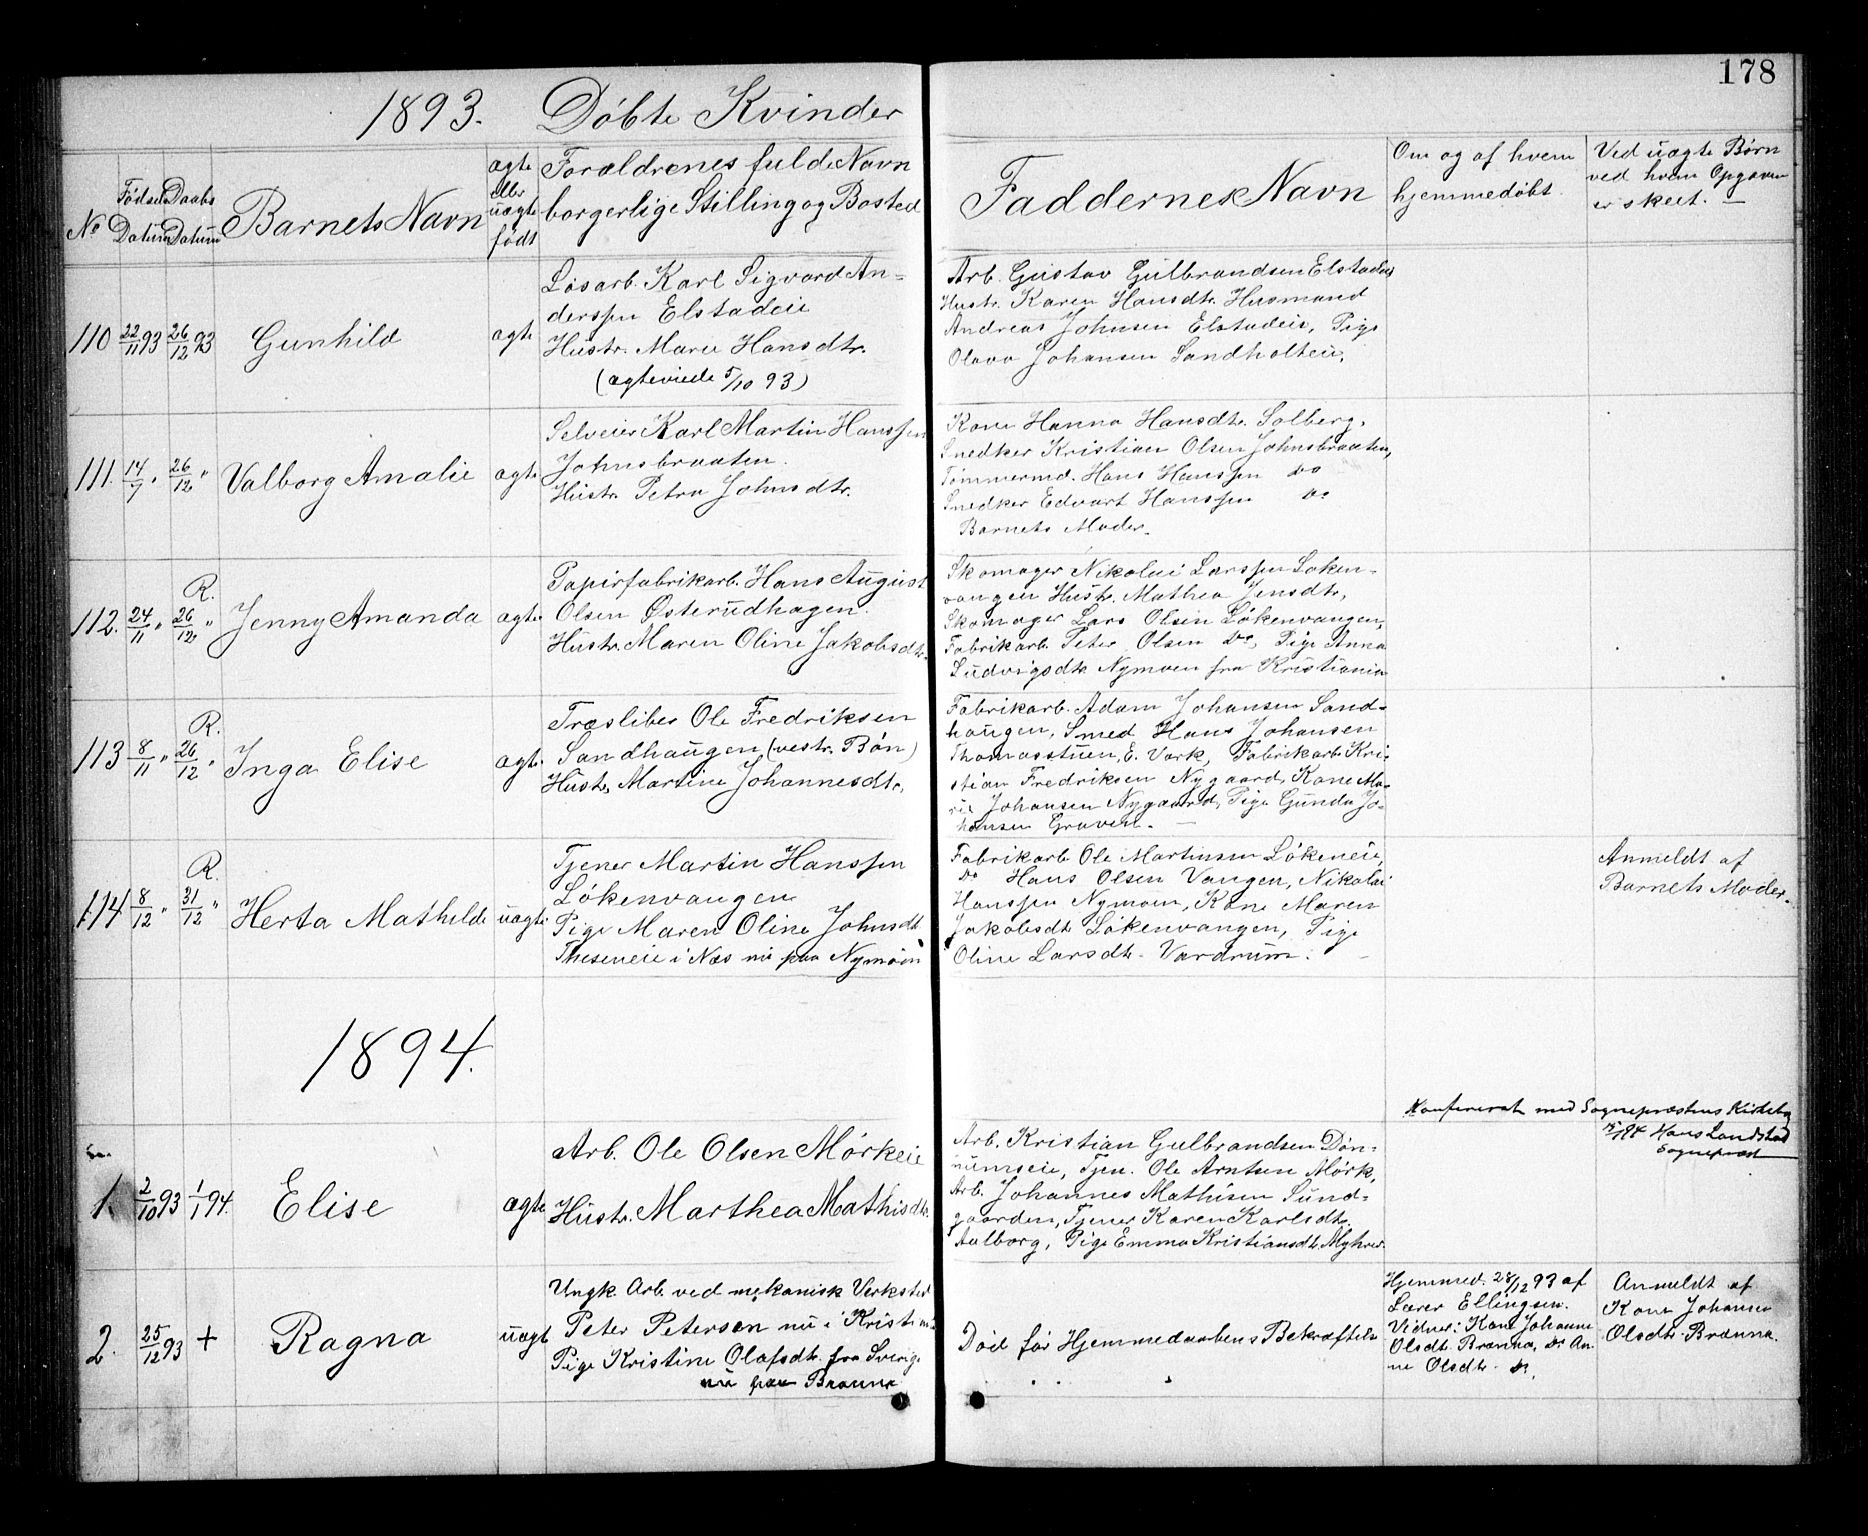 178
1893. Döbte Kvinder
No
Födsels Datum
Daabs Datum
Barnets Navn
ægte
eller
uægte
födt
Forældrenes fulde Navn
borgerlige Stilling og Bosted
Faddernes Navn
Om og af hvem
hjemmedöbt
Ved uægte Børn
ved hvem Opgaven
er skeet.
110 22/11 93 26/12 93 Gunhild ægte
Løsarb. Karl Sigvard An-
derssen Elstadeie
Hustr. Marie Hansdtr.
(ægteviede 5/10 93)
Arb. Gustav Gulbrandsen Elstadeie
Hustr. Karen Hansdtr. Husmand
Andreas Johnsen Elstadeie, Pige
Olava Johansen Sandholteie.
111. 14/7 " 26/12 " Valborg Amalie ægte
Selveier Karl Martin Hanssen
Johnsbraaten.
Hustr. Petra Johnsdtr.
Kone Hanna Hansdtr. Solberg.
Snedker Kristian Olsen Johnsbraaten,
Tømmermd. Hans Hanssen do
Snedker Edvart Hanssen do
Barnets Moder.
112. 24/11 " R. 26/12 " Jenny Amanda ægte
Papirfabrikarb. Hans August
Olsen Østerudhagen.
Hustr. Maren Oline Jakobsdtr.
Skomager Nikolai Larssen Löken-
vangen Hustr. Mathea Jensdtr,
Skomager Lars Olsen Lökenvangen,
Fabrikarb. Peter Olsen do, Pige Anna
Ludvigsdtr. Nymoen fra Kristiania
113 8/11 " R. 26/12 " Inga Elise ægt.
Træsliber Ole Fredriksen
Sandhaugen (vestr. Bön)
Hustr. Martine Johannesdtr.
Fabrikarb. Adam Johansen Sand-
haugen, Smed Hans Johansen
Thomasstuen, E. Værk, Fabrikarb. Kri-
stian Fredriksen Nygaard, Kone Ma-
rie Johansen Nygaard, Pige Gunda Jo-
hansen Graven.
114 8/12 " R. 31/12 " Herta Mathilde uægte
Tjener Martin Hanssen
Lökenvangen
Pige Maren Oline Johnsdt
Theseneie i Næs nu paa Nymoen
Fabrikarb. Ole Martinsen Lökeneie,
do Hans Olsen Vangen, Nikolai
Hanssen Nymoen, Kone Maren
Jakobsdt. Lökenvangen, Pige
Oline Larsdtr. Vardrum.
Anmeldt af
Barnets Moder.
1894.
Konfereret med Sognepræstens Kirkebog
Hans Landstad
Sognepræst
1. 2/10 93 1/1 94. Elise ægte
Arb. Ole Olsen Mörkeie
Hustr. Marthea Mathisdtr.
Arb. Kristian Gulbrandsen Døn-
numseie, Tjen. Ole Arntsen Mörk,
Arb. Johannes Mathisen Sund-
gaarden, Tjener Karen Karlsdtr.
Aalborg, Pige Emma Kristiansdt. Myhrer.
2. 25/12 93 + Ragna uægt
Ungk. Arb. ved mekanisk Verksted
Peter Petersen nu i Kristiania
Pige Kristine Olafsdtr. fra Sverige
nu paa Brænna
Död før Hjemmedaabens Bekræftelse
Hjemmed. 28/12 93 af
Lærer Ellingsen.
Vidner: Kone Johanne
Olsdt. Brænna, do An-
ne Olsdtr. do.
Anmeldt af
Kone Johanne
Olsdtr. Brænna.